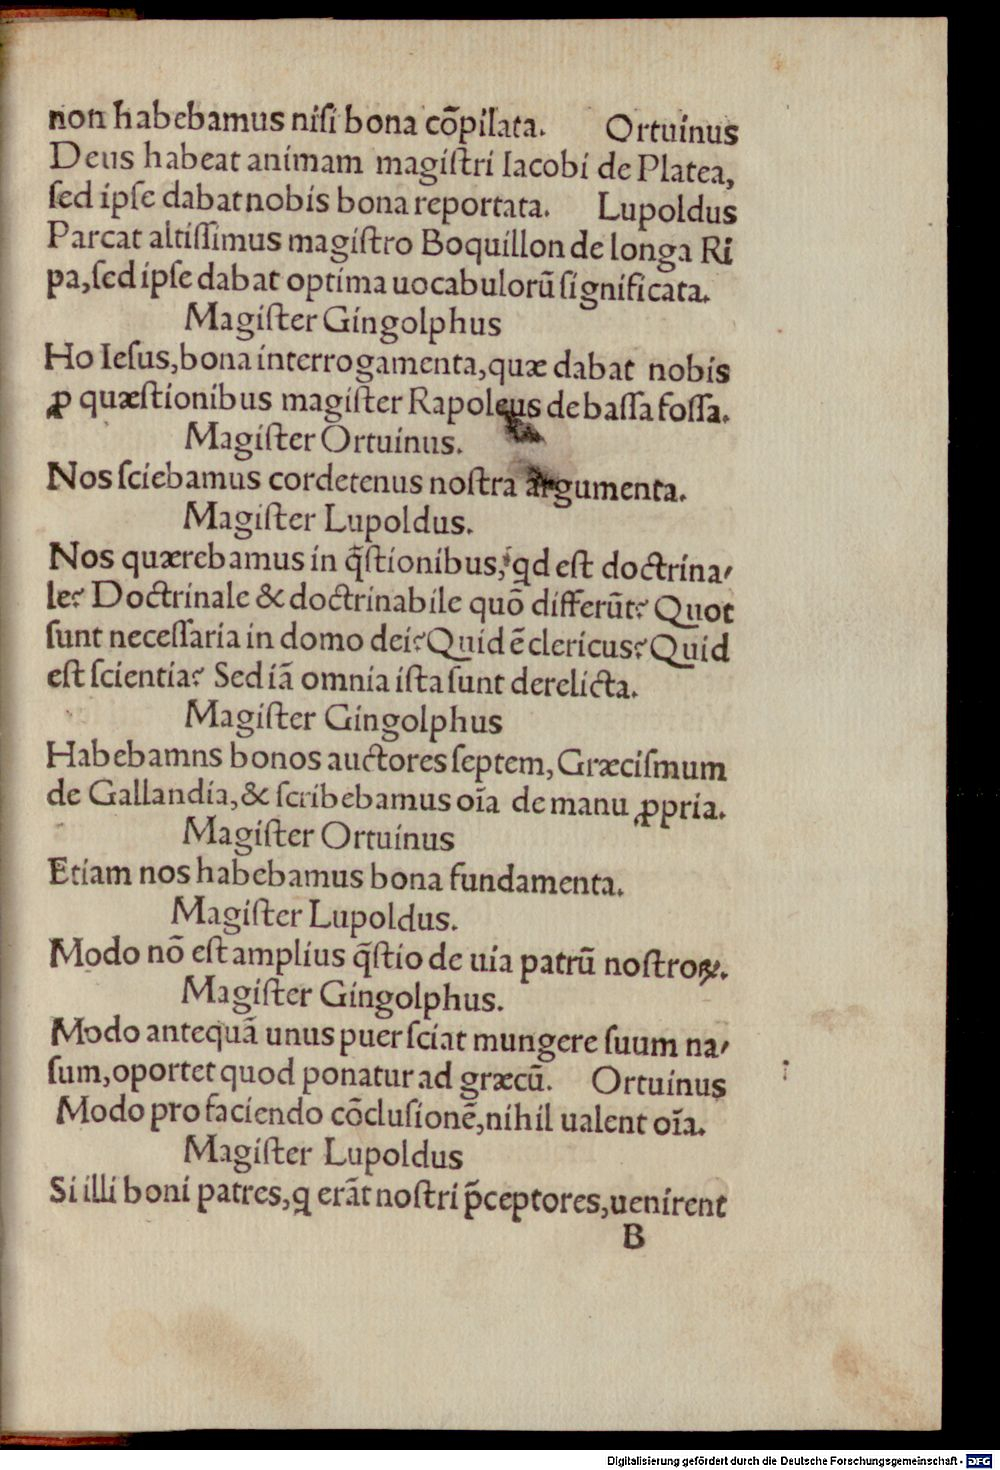 non habebamus niſi bona cõpilata. Ortuinus
Deus habeat animam magiſtri Iacobi de Platea,
ſed ipſe dabat nobis bona reportata. Lupoldus
Parcat altiſſimus magiſtro Boquillon de longa Ri
pa, ſed ipſe dabat optima uocabulorũ ſignificata.
Magiſter Gingolphus
Ho Ieſus, bona interrogamenta, quæ dabat nobis
ꝓ quæſtionibus magiſter Rapoleus de baſſa foſſa.
Magiſter Ortuinus.
Nos ſciebamus cordetenus noſtra argumenta.
Magiſter Lupoldus.
Nos quærebamus in q̃ſtionibus, qd eſt doctrina⸗
le? Doctrinale & doctrinabile quõ differũt? Quot
ſunt neceſſaria in domo dei? Quid ẽ clericus? Quid
eſt ſcientia? Sed iã omnia iſta ſunt derelicta.
Magiſter Gingolphus
Habebamns bonos auctores ſeptem, Græciſmum
de Gallandia, & ſcribebamus oĩa de manu ꝓpria.
Magiſter Ortuinus
Etiam nos habebamus bona fundamenta.
Magiſter Lupoldus.
Modo nõ eſt amplius q̃ſtio de uia patrũ noſtroꝝ.
Magiſter Gingolphus.
Modo antequã unus puer ſciat mungere ſuum na⸗
ſum, oportet quod ponatur ad græcũ. Ortuinus
Modo pro faciendo cõcluſionẽ, nihil ualent oĩa.
Magiſter Lupoldus
Si illi boni patres, q erãt noſtri p̃ceptores, uenirent
B
Digitalisierung gefördert durch die Deutsche Forschungsgemeinschaft - DFG